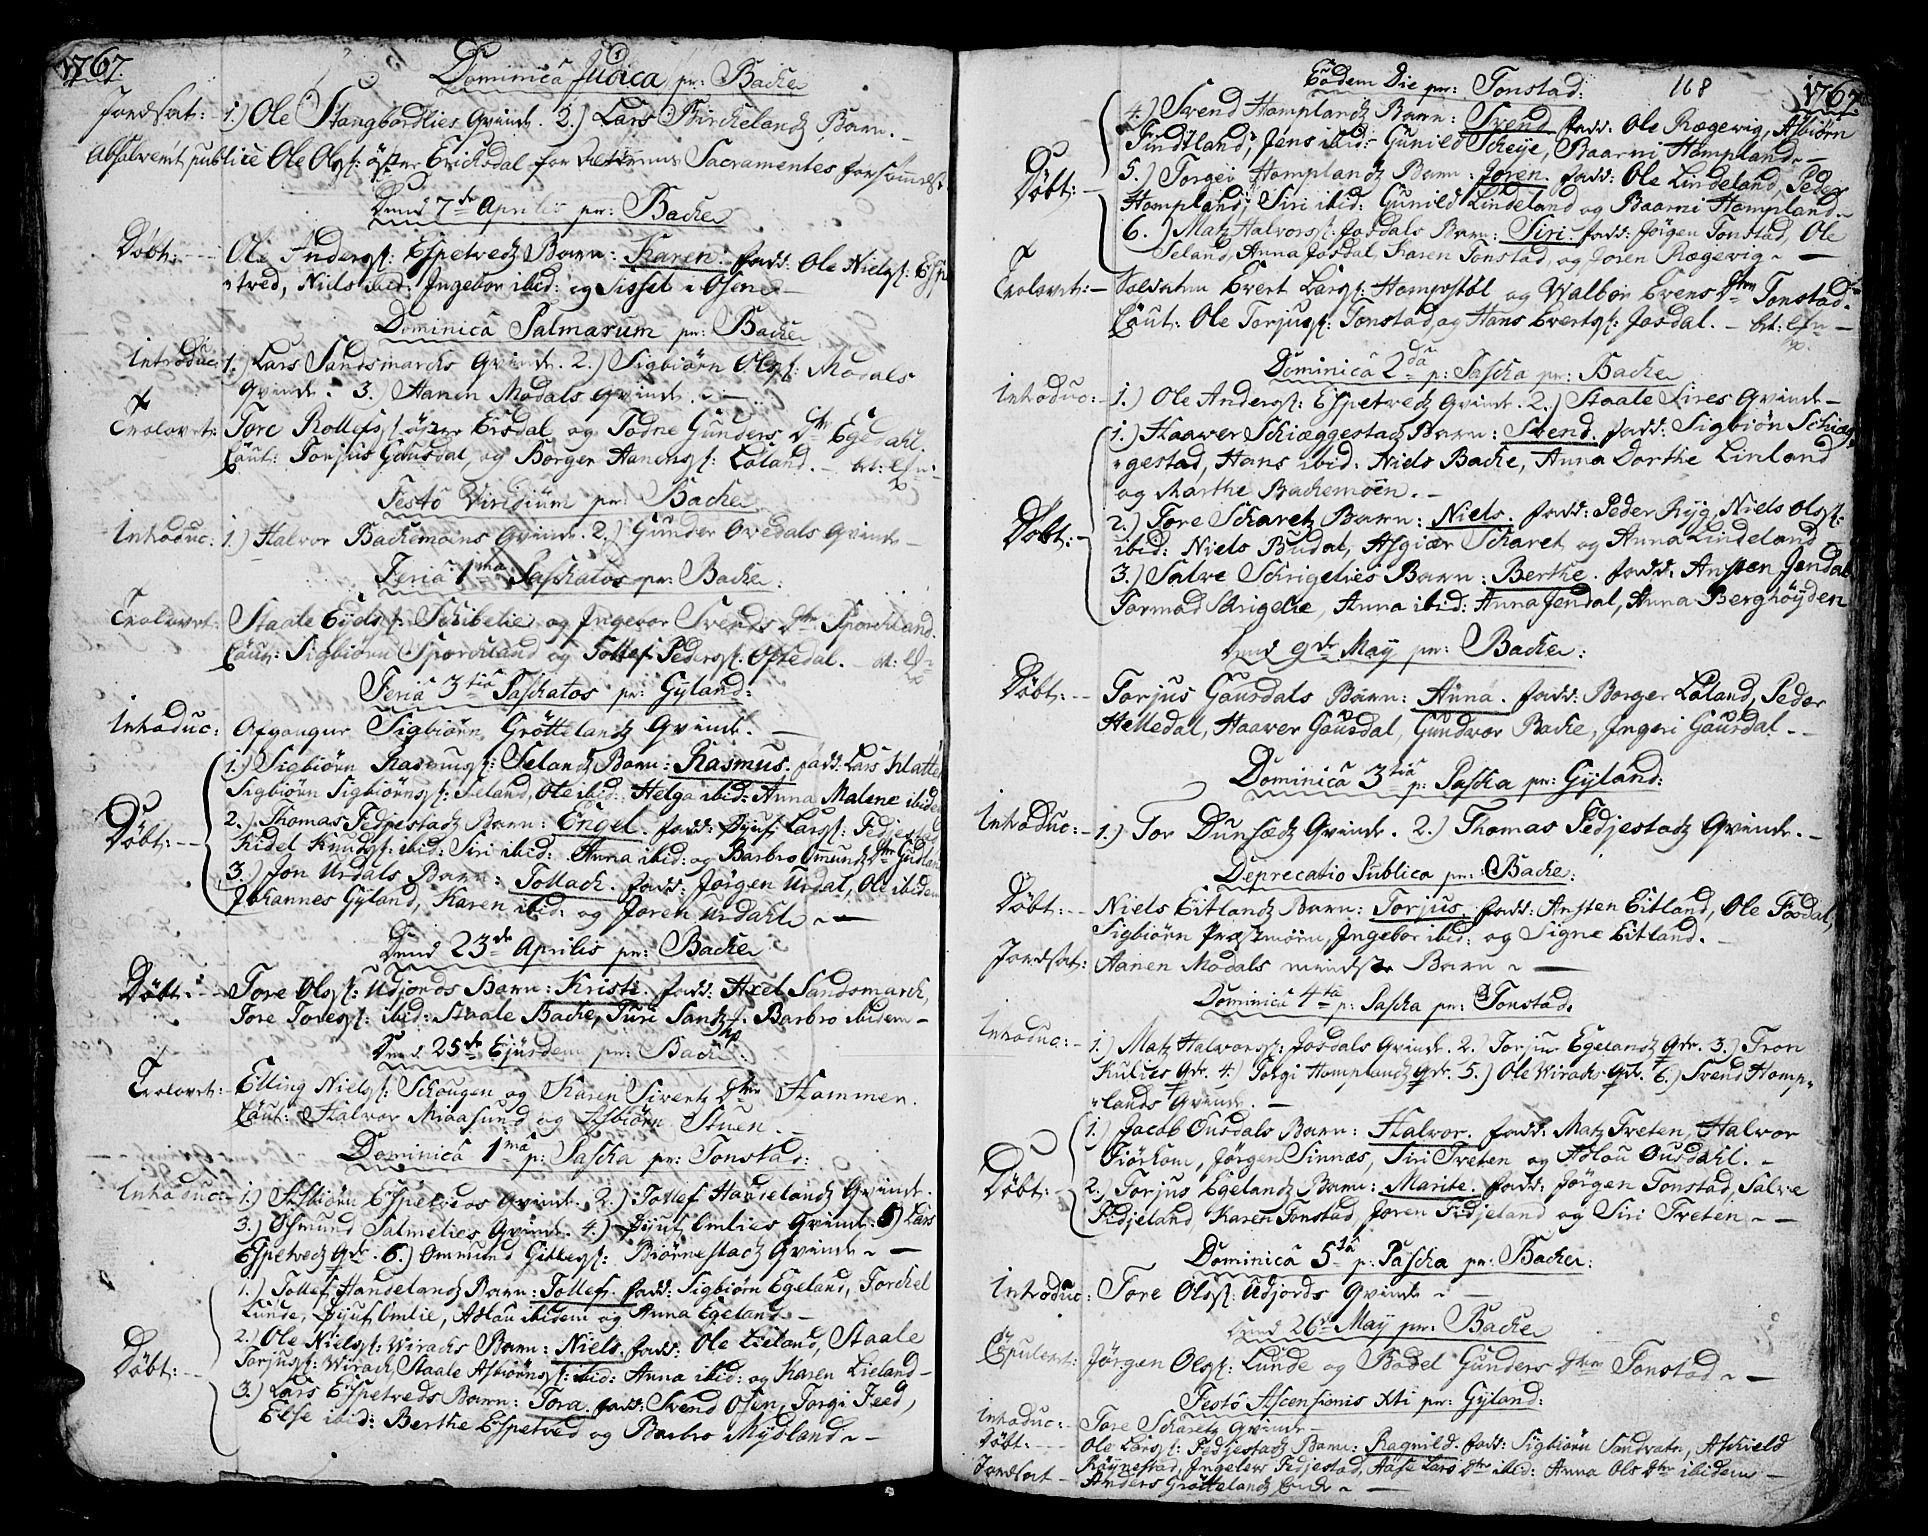 1767.
Dominica Judica pr: Backe
Jordsat: 1.) Ole Stangbordlies Qvinde. 2.) Lars Birckelandz Barn.
Absolveret publice Ole Ols: Erichsdal for Sacramentes forsømmelse
Dend 7de Aprilis pr: Backe
Døbt: Ole Anders: Espetvedz Barn: Karen. fadd: Ole Niels: Espe-
tved, Niels ibid: Ingebor ibid: og Sissel Osen
Dominica Palmarum pr: Backe
Introduc: 1.) Lars Sandsmarcks Qvinde. 2.) Sigbiørn Ols: Modals
Qvinde. 3.) Aanen Modals Qvinde.
Trolovet: Tore Rollefs: Ersdal og Todne Gunders Dtr Egedahl.
Caut: Torjus Gausdal, og Borger Aanens: Løland.
Festo Viridium pr: Backe
Introduc: 1.) Halvor Backemoens Qvinde. 2.) Gunder Ovedals Qvinde
Feria 1ma Paschatos pr: Backe
Trolovet: Staale Eids: Schibelie og Ingebor Svends Dtr Sporckland.
Caut: Sigbiørn Sporckland og Tollef Peders: Oftedal.
Feria 3tia Paschatos pr: Gyland:
Introduc: Afgangne Sigbiørn Grøttelandz Qvinde.
1.) Sigbiørn Rasmus: Selandz Barn: Rasmus. fadd: Lars Klatte
Sigbiørn Sigbiørns: Seland, Ole ibid: Helga ibid: Anna Malene ibidem
Døbt: 2.) Thomas Fedjestadz Barn: Engel. fadd: Siuf Lars: Fedjestad
Kidel Knuds: ibid: Siri ibid: Anna ibid: og Barbro Omundz Dtr Gudland
3.) Jon Urdals Barn: Tollack. fadd: Jørgen Urdal, Ole ibidem
Johannes Gyland, Karen ibid: og Joren Urdahl
Dend 23de Aprilis pr: Backe
Døbt: Tore Ols: Udjords Barn: Kristi. fadd: Axel Sandsmarck,
Tore Tores: ibid: Staale Backe, Turi Barbro ibidem
Dend 25de Ejusdem pr: Backe
Trolovet: Elling Niels: Schougen og Karen Sivertz Dtr Hammer.
Caut: Halvor Miaasund og Asbiørn Stuen.
Dominica 1ma p: Pascha pr: Tonstad:
Introduc: 1.) Asbiørn Espetveds Qvinde. 2.) Tollef Hauselandz Qvinde.
3.) Osmund Salmelies Qvinde. 4.) Siuf Omlies Qvinde. 5) Lars
Espetvedz Qde. 6.) Ommund Gitles: Biørnestadz Qvinde
1.) Tollef Handelandz Barn: Tollef. fadd: Sigbiørn Egeland, Torckel
Lunde, Siuf Omlie, Adlau ibidem og Anna Egeland
Døbt: 2.) Ole Niels: Wiracks Barn: Niels. fadd: Ole Lieland, Staale
Torjus: Wirack, Staale Asbiørns: ibid: Anna ibid: og Karen Lieland
3.) Lars Espetveds Barn: Tora. fadd: Svend Osen, Torgi Feed,
Else ibid: Berthe Espetved og Barbro Mydland
Eodem Die pr: Tonstad: 168 1767.
4.) Svend Homplandz Barn: Svend. fadd: Ole Rægevig, Asbiørn
Findtland, Jens ibid: Gunild Scheye, Baarni Hompland
Døbt: 5.) Torgei Homplandz Barn: Joren. fadd: Ole Lindeland, Peder
Hompland, Siri ibid: Gunild Lindeland og Baarni Hompland
6.) Matz Halvors: Josdals Barn: Siri. fadd: Jørgen Tonstad, Ole
Seland, Anna Josdal, Karen Tonstad, og Joren Rægevig
Trolovet: Soldaten Evert Lars: Hompstøl og Walbor Evens Dtr Tonstad.
Caut: Ole Torjus: Tonstad og Hans Everts: Josdal.
Dominica 2da p: Pascha pr: Backe
Introduc: 1.) Ole Anders: Espetvedz Qvinde. 2.) Staale Sires Qvinde
1.) Haaver Schieggestadz Barn: Svend. fadd: Sigbiørn Schieg-
gestad, Hans ibid: Niels Backe, Anna Dorthe Linland
og Marthe Backemoen.
Døbt: 2.) Tore Scharetz Barn: Niels. fadd: Peder Ryg, Niels Ols:
ibid: Niels Budal, Asgiær Scharet og Anna Lindeland
3.) Salve Schrigelies Barn: Berthe. fadd: Ansten Jendal
Tormod Schrigelie, Anna ibid: Anna Jendal, Anna Berghøyden
Dend 9de May pr: Backe:
Døbt: Torjus Gausdals Barn: Anna. fadd: Borger Løland, Peder
Helledal, Haaver Gausdal, Gundvor Backe, Ingeri Gausdal
Dominica 3tia p: Pascha pr: Gyland:
Introduc: 1.) Tor Dunsædz Qvinde. 2.) Thomas Fedjestadz Qvinde.
Deprecatio Publica pr: Backe:
Døbt: Niels Eitlandz Barn: Torjus. fadd: Ansten Eitland, Ole Fosdal,
Sigbiørn Præstmoen, Ingebor ibid: og Signe Eitland.
Jordsat: Aanen Modals mindste Barn
Dominica 4ta p: Pascha pr: Tonstad.
Introduc: 1.) Matz Halvors: Josdals Qvinde. 2.) Torjus Egelandz Qde. 3.) Tron
Kulies Qde. 4.) Torgi Homplandz Qde. 5.) Ole Wiracks Qde. 6.) Svend Homp-
lands Qvinde.
1.) Jacob Ousdals Barn: Halvor. fadd: Matz Treten, Halvor
Fiørhom, Jørgen Sinnæs, Siri Treten og Adlau Ousdahl.
Døbt: 2.) Torjus Egelandz Barn: Marite. fadd: Jørgen Tonstad, Salve
Fidjeland, Karen Tonstad, Joren Fidjeland og Siri Treten
Dominica 5ta p: Pascha pr: Backe:
Introduc: Tore Ols: Udjords Qvinde
Dend 26de May pr: Backe
Copuleret: Jørgen Ols: Lunde og Bodel Gunders Dtr Tonstad
Festo Ascensionis Xti pr: Gyland:
Introduc: Tore Scharetz Qvinde
Døbt: Ole Lars: Fedjestadz Barn: Ragnild. fadd: Sigbiørn Sandvatn, Aschield
Røynestad, Ingeler Fedjestad, Aase Lars Dtr ibid: Anna Ols Dtr ibidem
Jordsat Anders Grøttelandz Enke